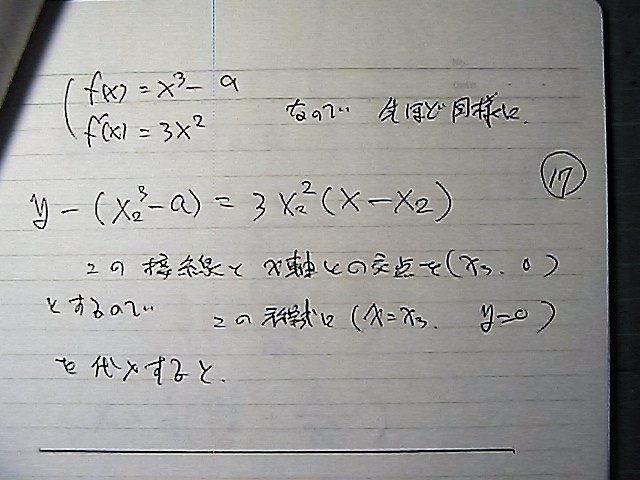 f(x) = x³ - a
f'(x) = 3x² なので 先ほど同様に.
⑰
y - (x₂³ - a) = 3x₂²(x - x₂)
この接線と x軸との交点を(x₃, 0)
とするので この式に (x = x₃, y = 0)
を代入すると.